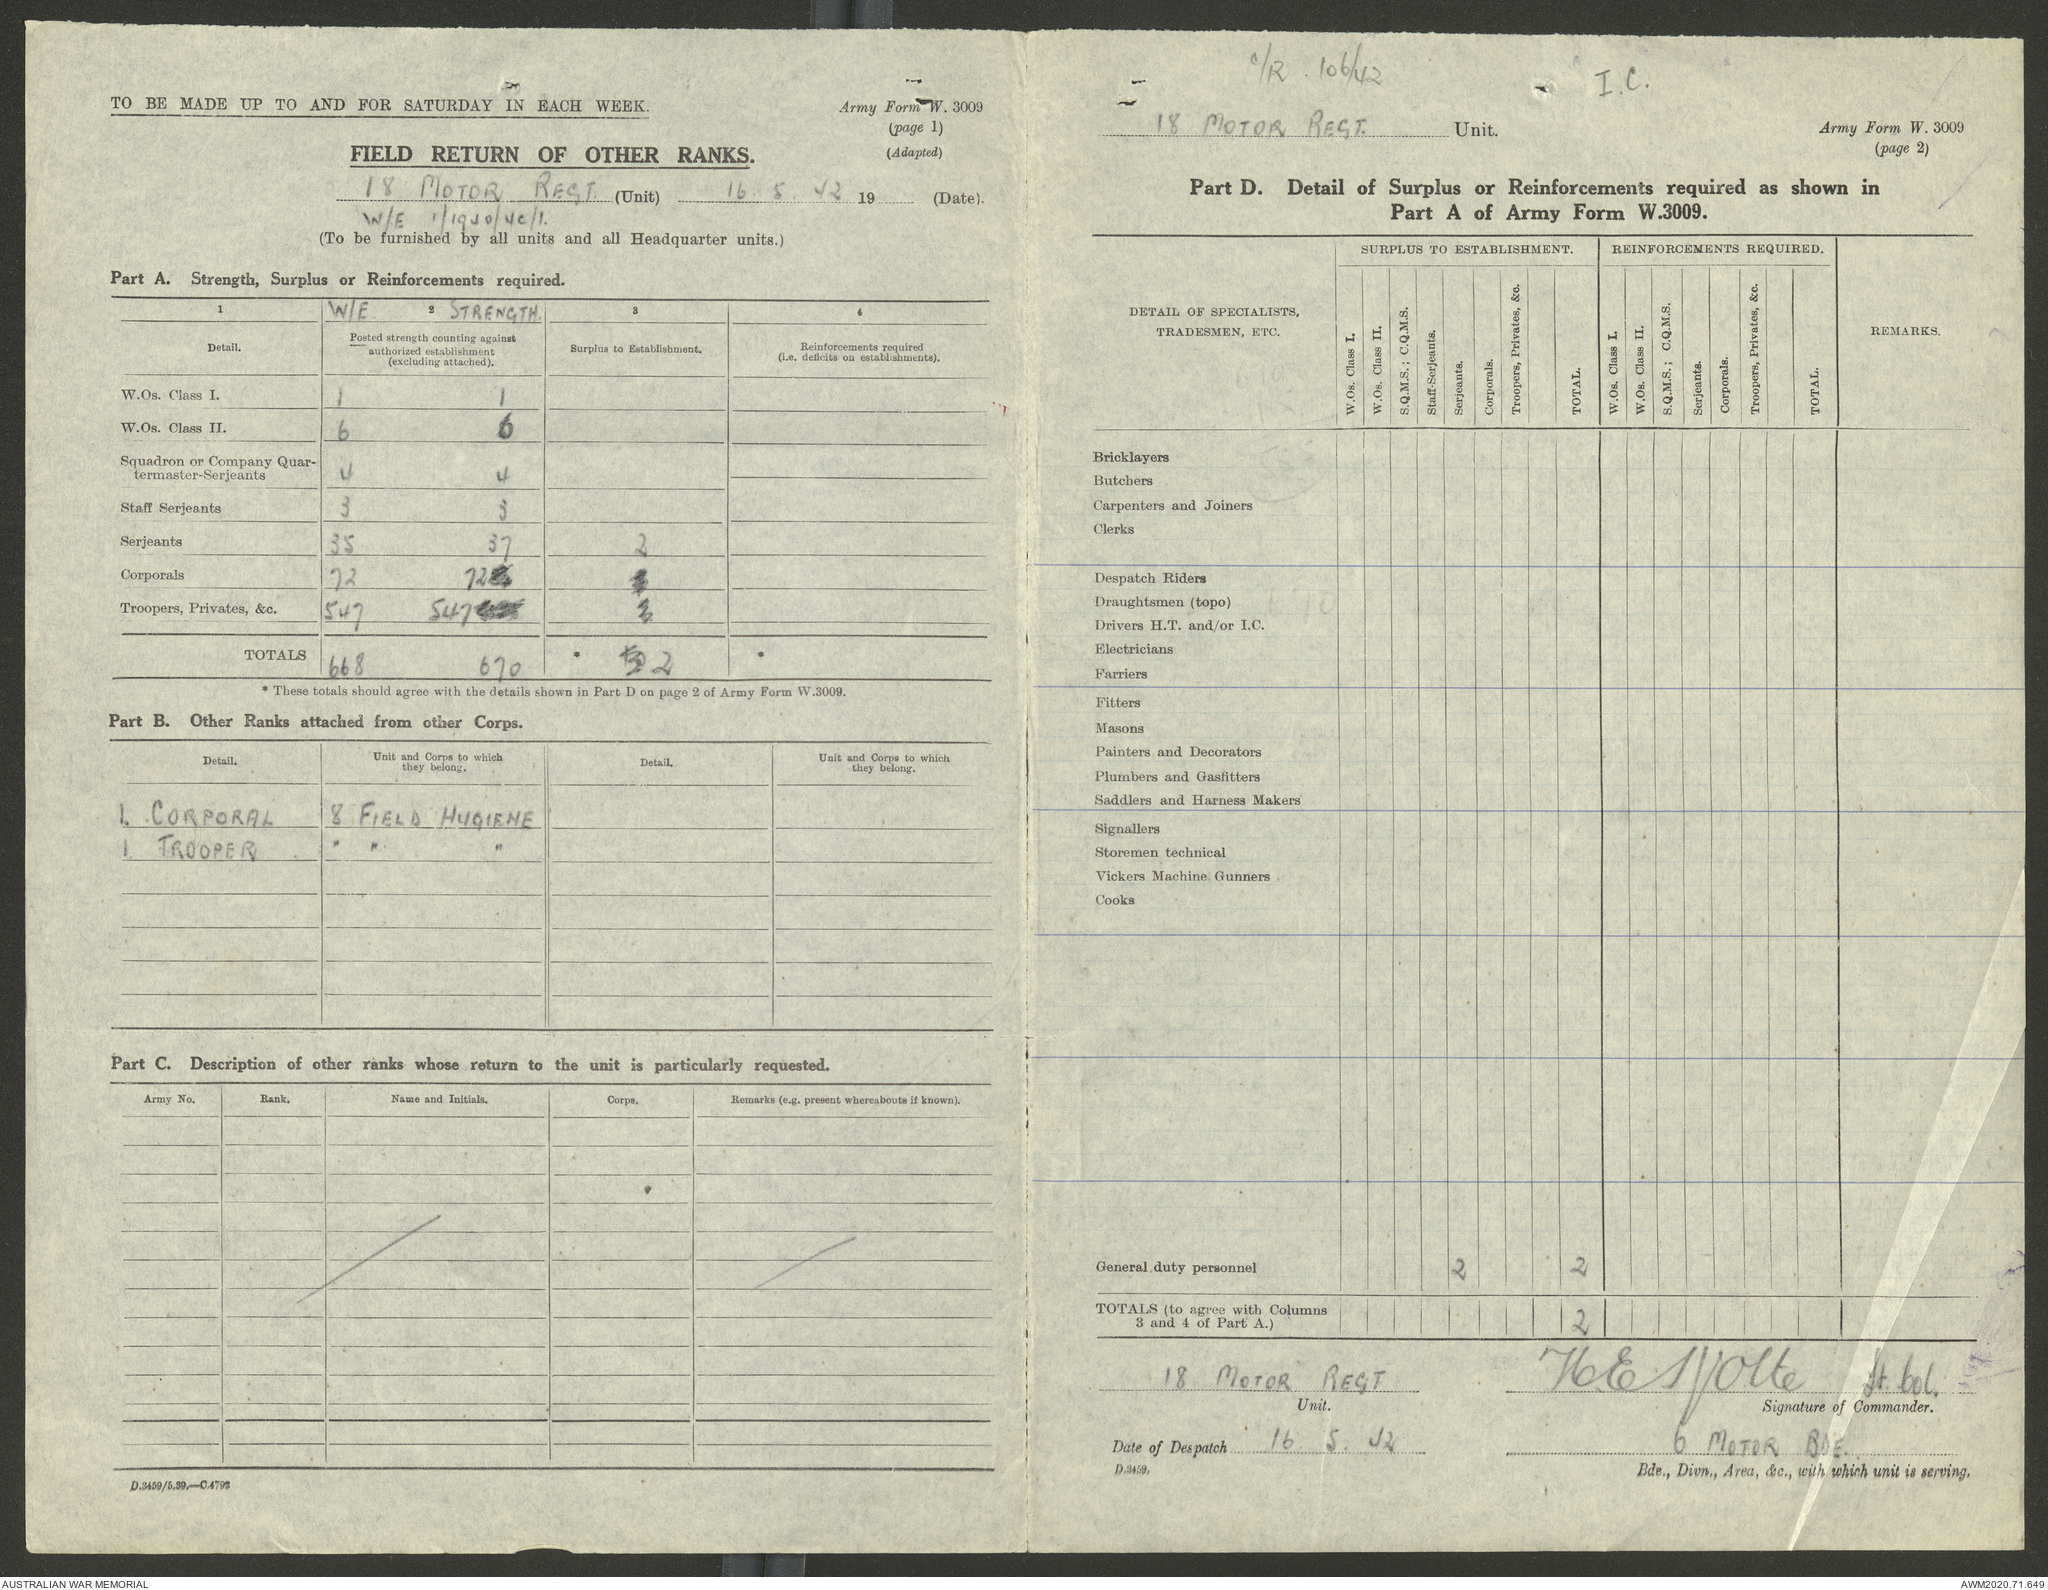 TO BE MADE UP TO AND FOR SATURDAY IN EACH WEEK.
Army Form W. 3009
(page 1)
(Adapted)
FIELD RETURN OF OTHER RANKS.
18 MOTOR REGT. (Unit) 16. 5. 42 19 (Date).
W/E 1/1940/4C/1.
(To be furnished by all units and all Headquarter units.)
Part A. Strength, Surplus or Reinforcements required.
1 W/E 2 STRENGTH. 3 4
Detail.
Posted strength counting against
authorized establishment
(excluding attached).
Surplus to Establishment.
Reinforcements required
(i.e. deficits on establishments).
W.Os. Class I. 1 1
W.Os. Class II. 6 6
Squadron or Company Quar-
termaster-Serjeants 4 4
Staff Serjeants 3 3
Serjeants 35 37 2
Corporals 72 72
Troopers, Privates, &c. 547 547
TOTALS 668 670 * 2 *
* These totals should agree with the details shown in Part D on page 2 of Army Form W.3009.
Part B. Other Ranks attached from other Corps.
Detail.
Unit and Corps to which
they belong.
Detail.
Unit and Corps to which
they belong.
1. CORPORAL 8 FIELD HYGIENE
1 TROOPER " " "
Part C. Description of other ranks whose return to the unit is particularly requested.
Army No. Rank. Name and Initials. Corps. Remarks (e.g. present whereabouts if known).
D.3459/5.39.—C.4793
C/R. 106/42
I.C.
18 MOTOR REGT. Unit.
Army Form W. 3009
(page 2)
Part D. Detail of Surplus or Reinforcements required as shown in
Part A of Army Form W.3009.
DETAIL OF SPECIALISTS,
TRADESMEN, ETC.
SURPLUS TO ESTABLISHMENT.
W.Os. Class I.
W.Os. Class II.
S.Q.M.S. ; C.Q.M.S.
Staff-Serjeants.
Serjeants.
Corporals.
Troopers, Privates, &c.
TOTAL.
REINFORCEMENTS REQUIRED.
W.Os. Class I.
W.Os. Class II.
S.Q.M.S. ; C.Q.M.S.
Serjeants.
Corporals.
Troopers, Privates, &c.
TOTAL.
REMARKS.
Bricklayers
Butchers
Carpenters and Joiners
Clerks
Despatch Riders
Draughtsmen (topo)
Drivers H.T. and/or I.C.
Electricians
Farriers
Fitters
Masons
Painters and Decorators
Plumbers and Gasfitters
Saddlers and Harness Makers
Signallers
Storemen technical
Vickers Machine Gunners
Cooks
General duty personnel 2 2
TOTALS (to agree with Columns
3 and 4 of Part A.) 2
18 MOTOR REGT
Unit.
Lt. Col.
Signature of Commander.
Date of Despatch 16. 5. 42
6 MOTOR BDE.
D.3459.
Bde., Divn., Area, &c., with which unit is serving.
AUSTRALIAN WAR MEMORIAL
AWM2020.71.649